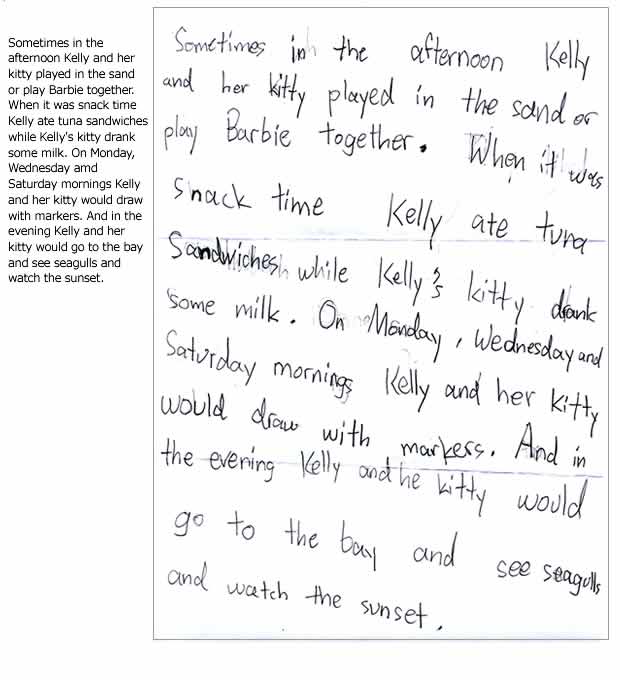 Sometimes in the
afternoon Kelly and her
kitty played in the sand
or play Barbie together.
When it was snack time
Kelly ate tuna sandwiches
while Kelly's kitty drank
some milk. On Monday,
Wednesday amd
Saturday mornings Kelly
and her kitty would draw
with markers. And in the
evening Kelly and her
kitty would go to the bay
and see seagulls and
watch the sunset.
Sometimes in the afternoon Kelly
and her kitty played in the sand or
play Barbie together. When it was
snack time Kelly ate tuna
Sandwiches while Kelly's kitty drank
some milk. On Monday, Wednesday and
Saturday mornings Kelly and her kitty
would draw with markers. And in
the evening Kelly and he kitty would
go to the bay and see seagulls
and watch the sunset.